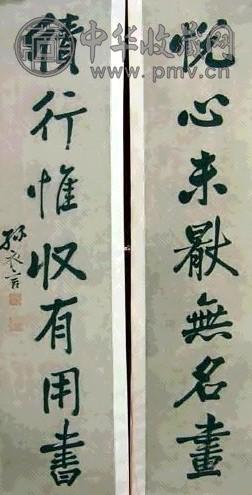 中华收藏网
www.pmv.cn
悅心未厭無名畫
積行惟收有用書
孫衣言